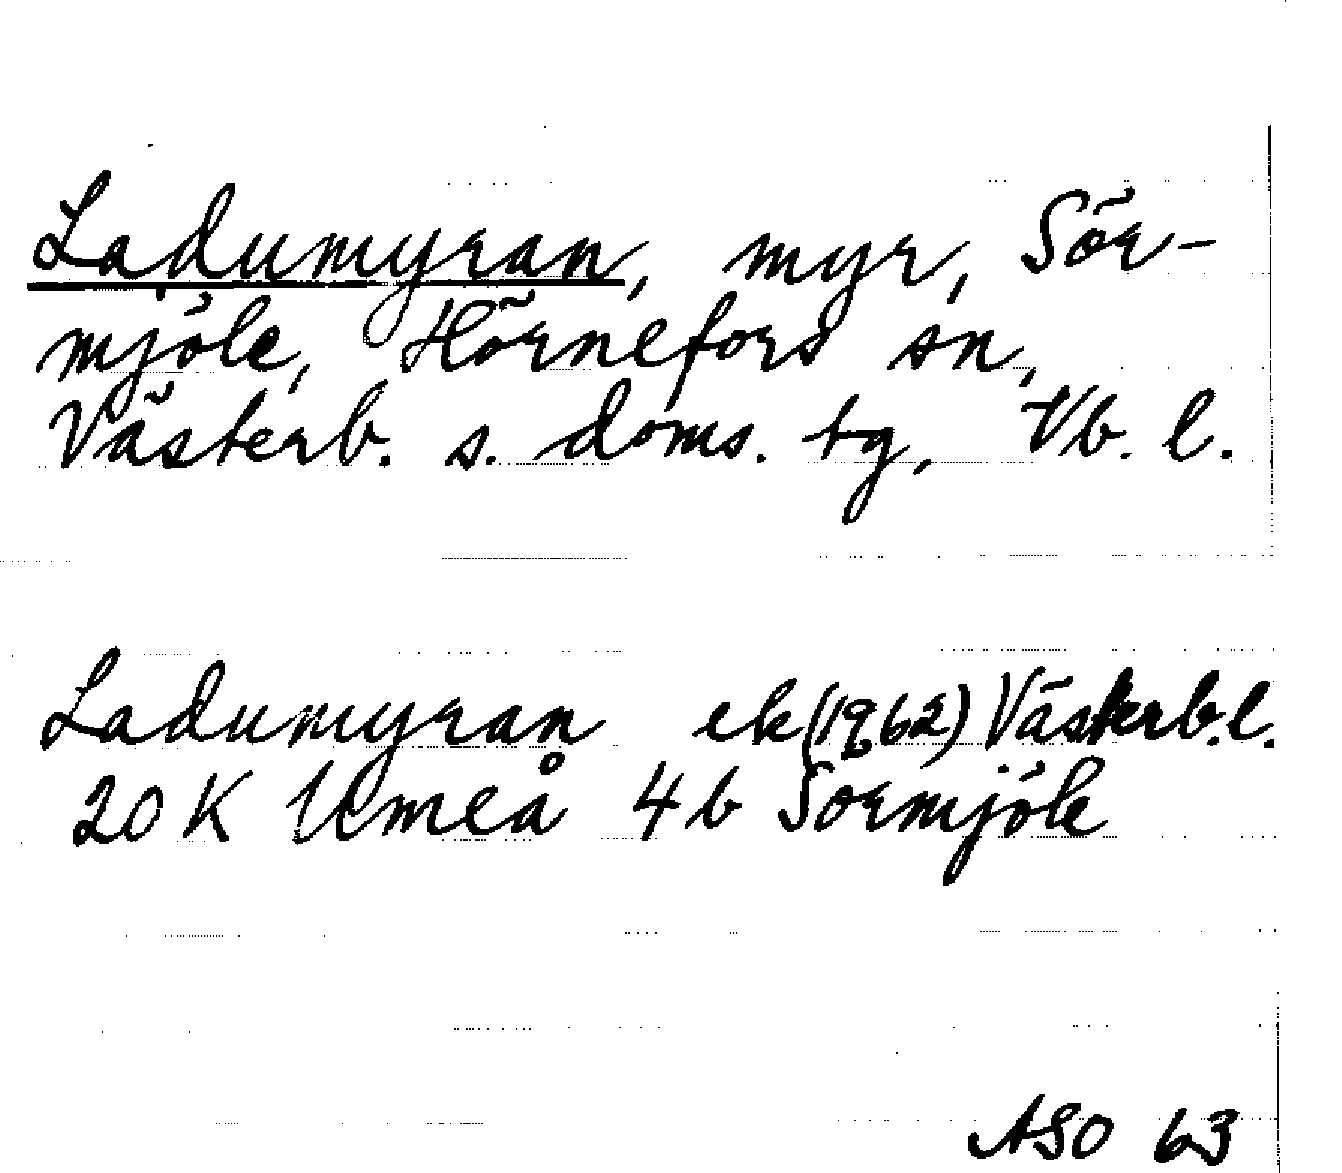 Ladumyran, myr, Sör-
mjöle, Hörnefors sn,
Västerb. s. doms. tg, Vb. l.
Ladumyran ek (1962) Västerb.l.
20 K Umeå 4 b Sörmjöle
ASO 63